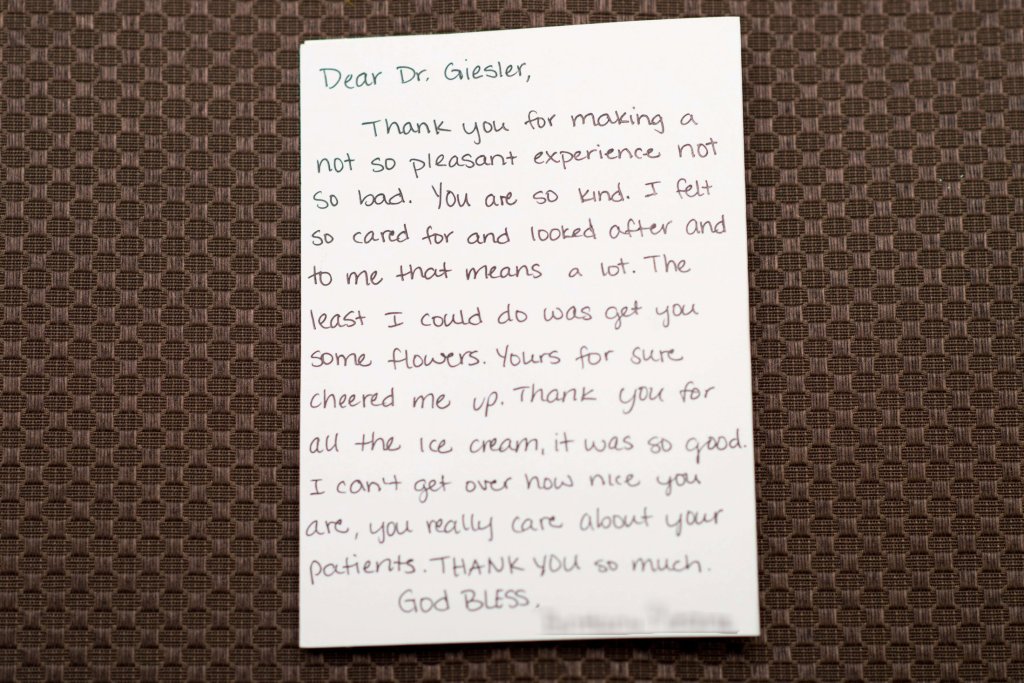 Dear Dr. Giesler,
Thank you for making a
not so pleasant experience not
so bad. You are so kind. I felt
so cared for and looked after and
to me that means a lot. The
least I could do was get you
some flowers. Yours for sure
cheered me up. Thank you for
all the ice cream, it was so good.
I can't get over how nice you
are, you really care about your
patients. THANK YOU so much.
God BLESS.